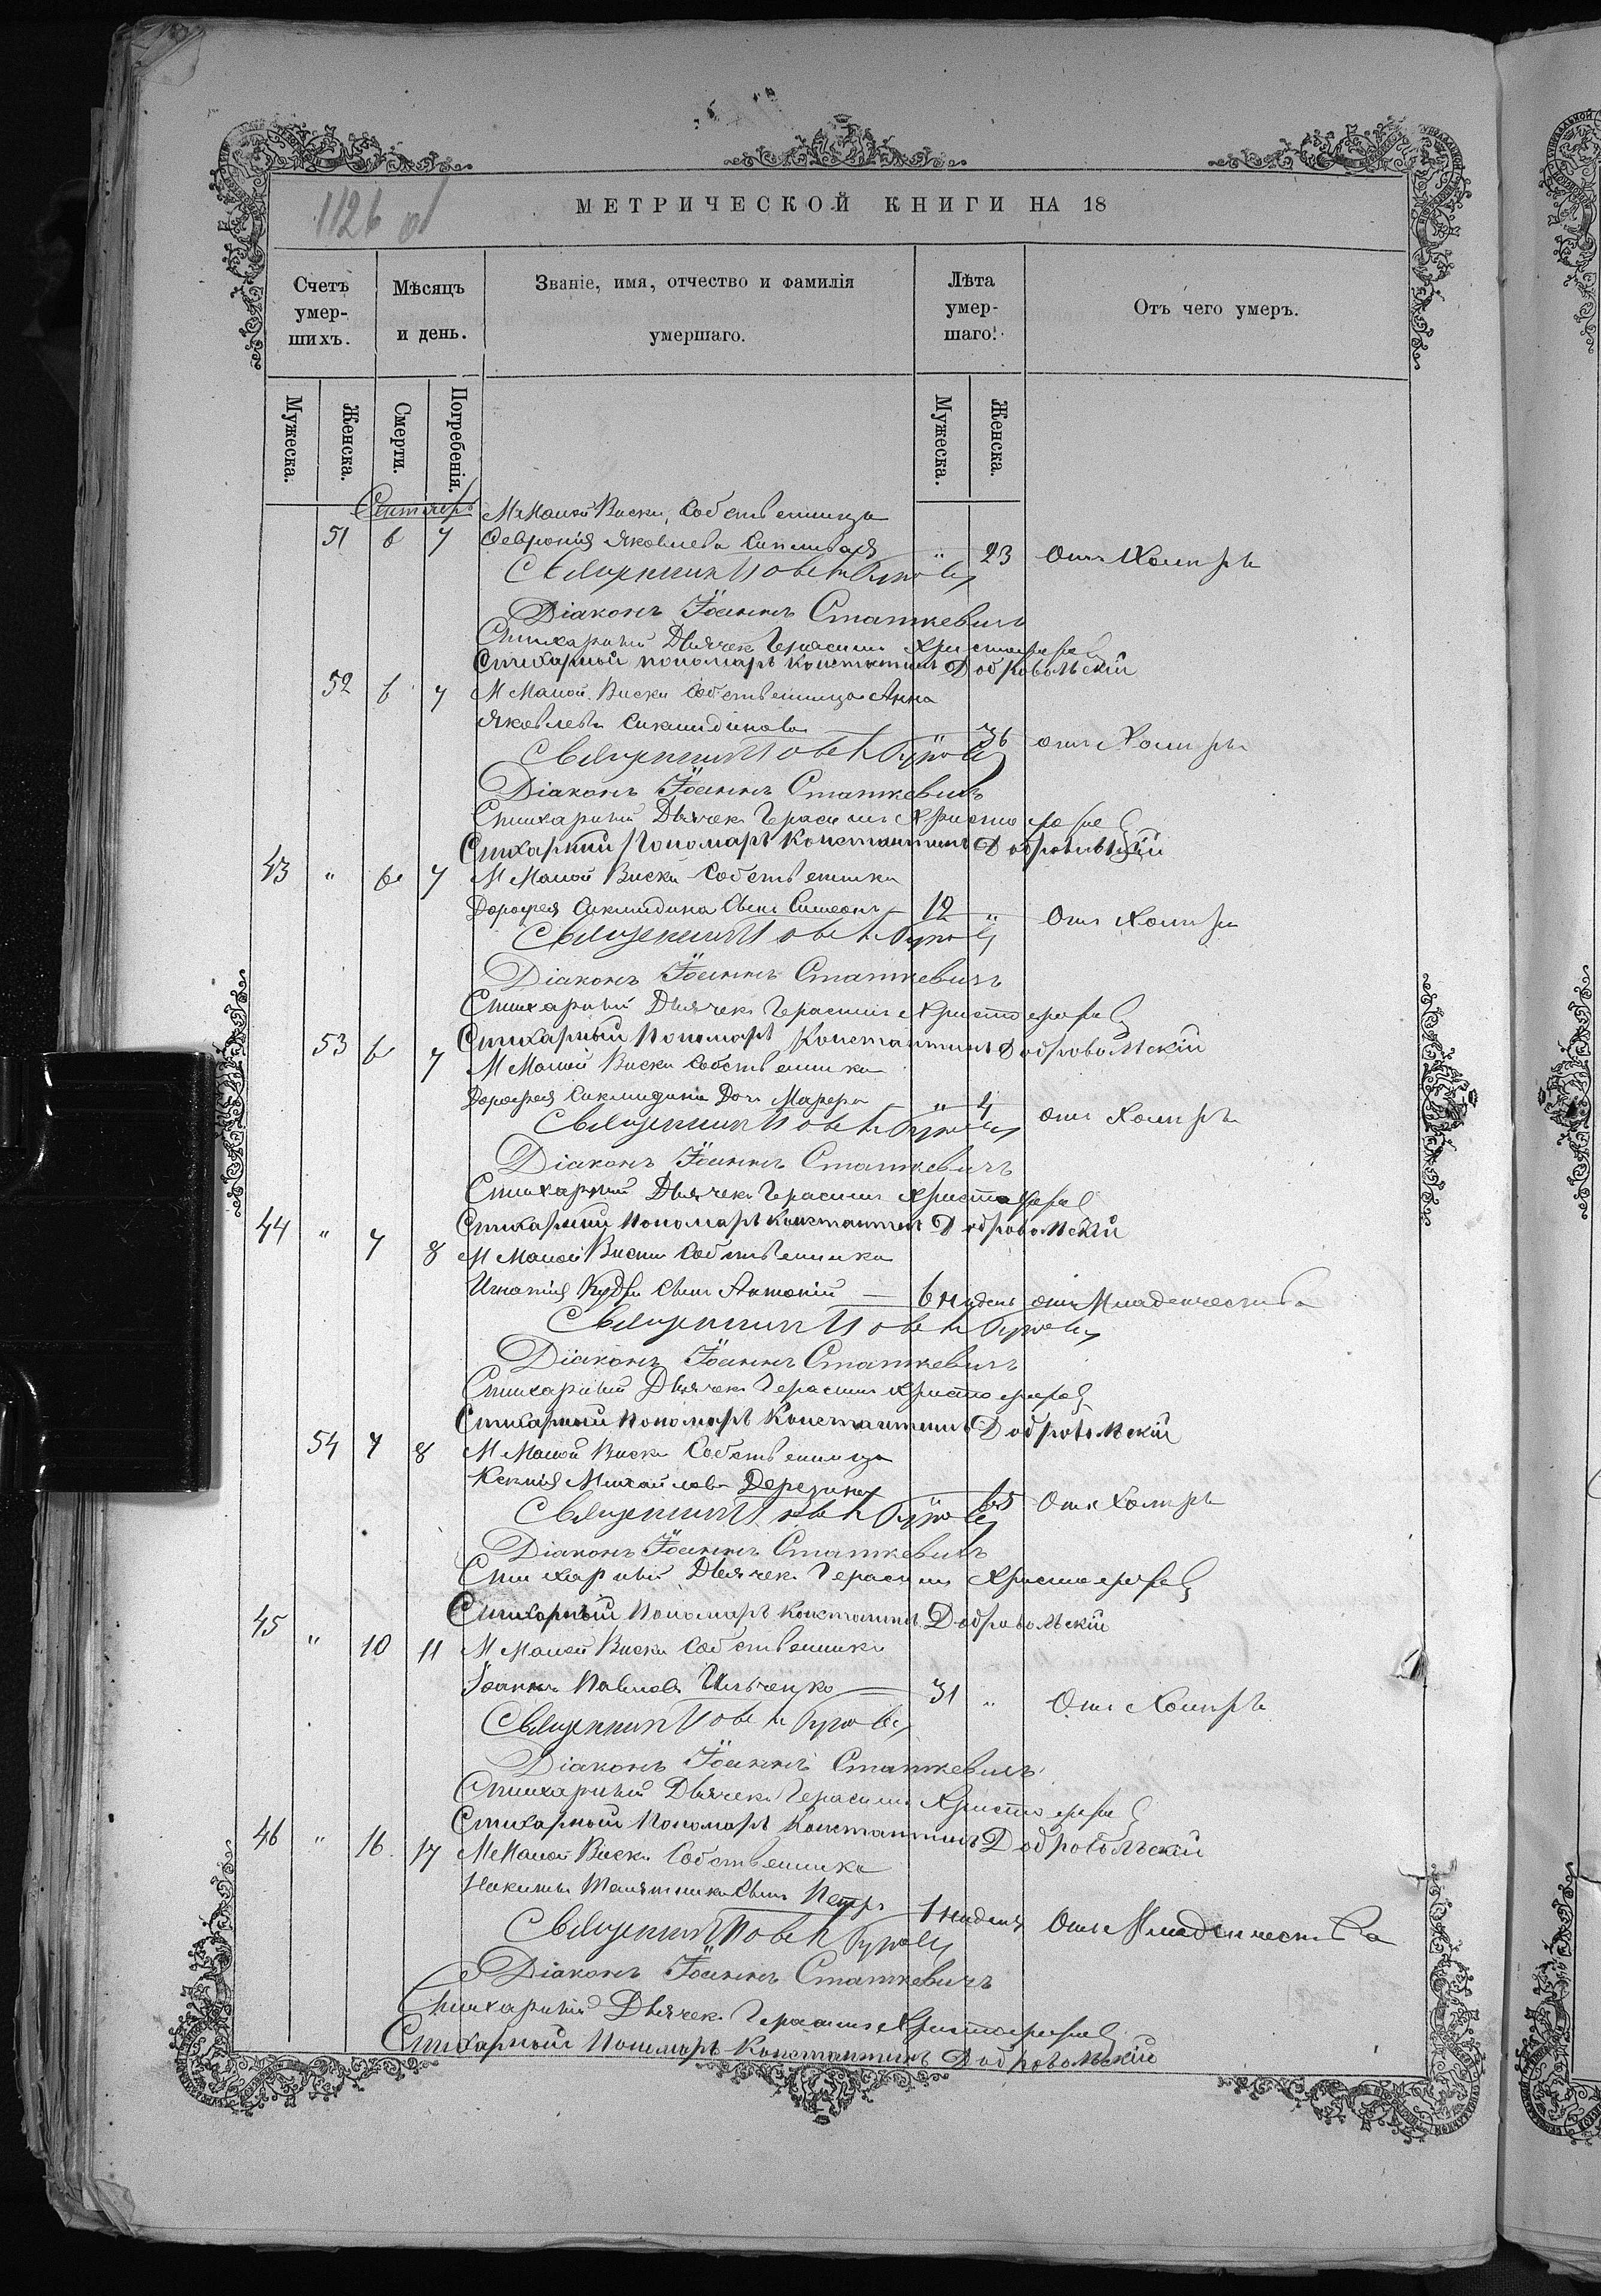 1126 об
МЕТРИЧЕСКОЙ КНИГИ НА 18
Счетъ умер-шихъ. Мѣсяцъ и день. Званіе, имя, отчество и фамилія умершаго. Лѣта умер-шаго. Отъ чего умеръ.
Мужеска. Женска. Смерти. Погребенія. Мужеска. Женска.
Сентябрь М Малой Виски, Собственница
51 6 7 Февронія Яковлева " 23 Отъ Холеры
Священникъ
Діаконъ Іоаннъ Статкевичъ
Стихарный Дьячекъ Герасимъ Христофоровъ
Стихарный пономарь Константинъ Добровольскій
52 6 7 М Малой Виски Собственница Анна
Яковлева Сиклидинова " 36 отъ Холеры
Священникъ
Діаконъ Іоаннъ Статкевичъ
Стихарный Дьячекъ Герасимъ Христофоровъ
Стихарный Пономарь Константинъ Добровольскій
43 " 6 7 М Малой Виски Собственника
Дорофея Сиклидина Сынъ Симеонъ 12 " Отъ Холеры
Священникъ
Діаконъ Іоаннъ Статкевичъ
Стихарный Дьячекъ Герасимъ Христофоровъ
Стихарный Пономарь Константинъ Добровольскій
53 6 7 М Малой Виски Собственника
Дорофея Сиклидина Дочь " 4 отъ Холеры
Священникъ
Діаконъ Іоаннъ Статкевичъ
Стихарный Дьячекъ Герасимъ Христофоровъ
Стихарный Пономарь Константинъ Добровольскій
44 " 7 8 М Малой Виски Собственника
Игнатія Кудри Сынъ Антоній 6 недель отъ Младенчества
Священникъ
Діаконъ Іоаннъ Статкевичъ
Стихарный Дьячекъ Герасимъ Христофоровъ
Стихарный Пономарь Константинъ Добровольскій
54 7 8 М Малой Виски Собственница
Ксенія Михайлова " 65 Отъ Холеры
Священникъ
Діаконъ Іоаннъ Статкевичъ
Стихарный Дьячекъ Герасимъ Христофоровъ
Стихарный Пономарь Константинъ Добровольскій
45 " 10 11 М Малой Виски Собственникъ
Іоаннъ Павловъ Ильченко 31 " Отъ Холеры
Священникъ
Діаконъ Іоаннъ Статкевичъ
Стихарный Дьячекъ Герасимъ Христофоровъ
Стихарный Пономарь Константинъ Добровольскій
46 " 16 17 М Малой Виски Собственника
Сынъ Петръ 1 неделя Отъ Младенчества
Священникъ
Діаконъ Іоаннъ Статкевичъ
Стихарный Дьячекъ Герасимъ Христофоровъ
Стихарный Пономарь Константинъ Добровольскій